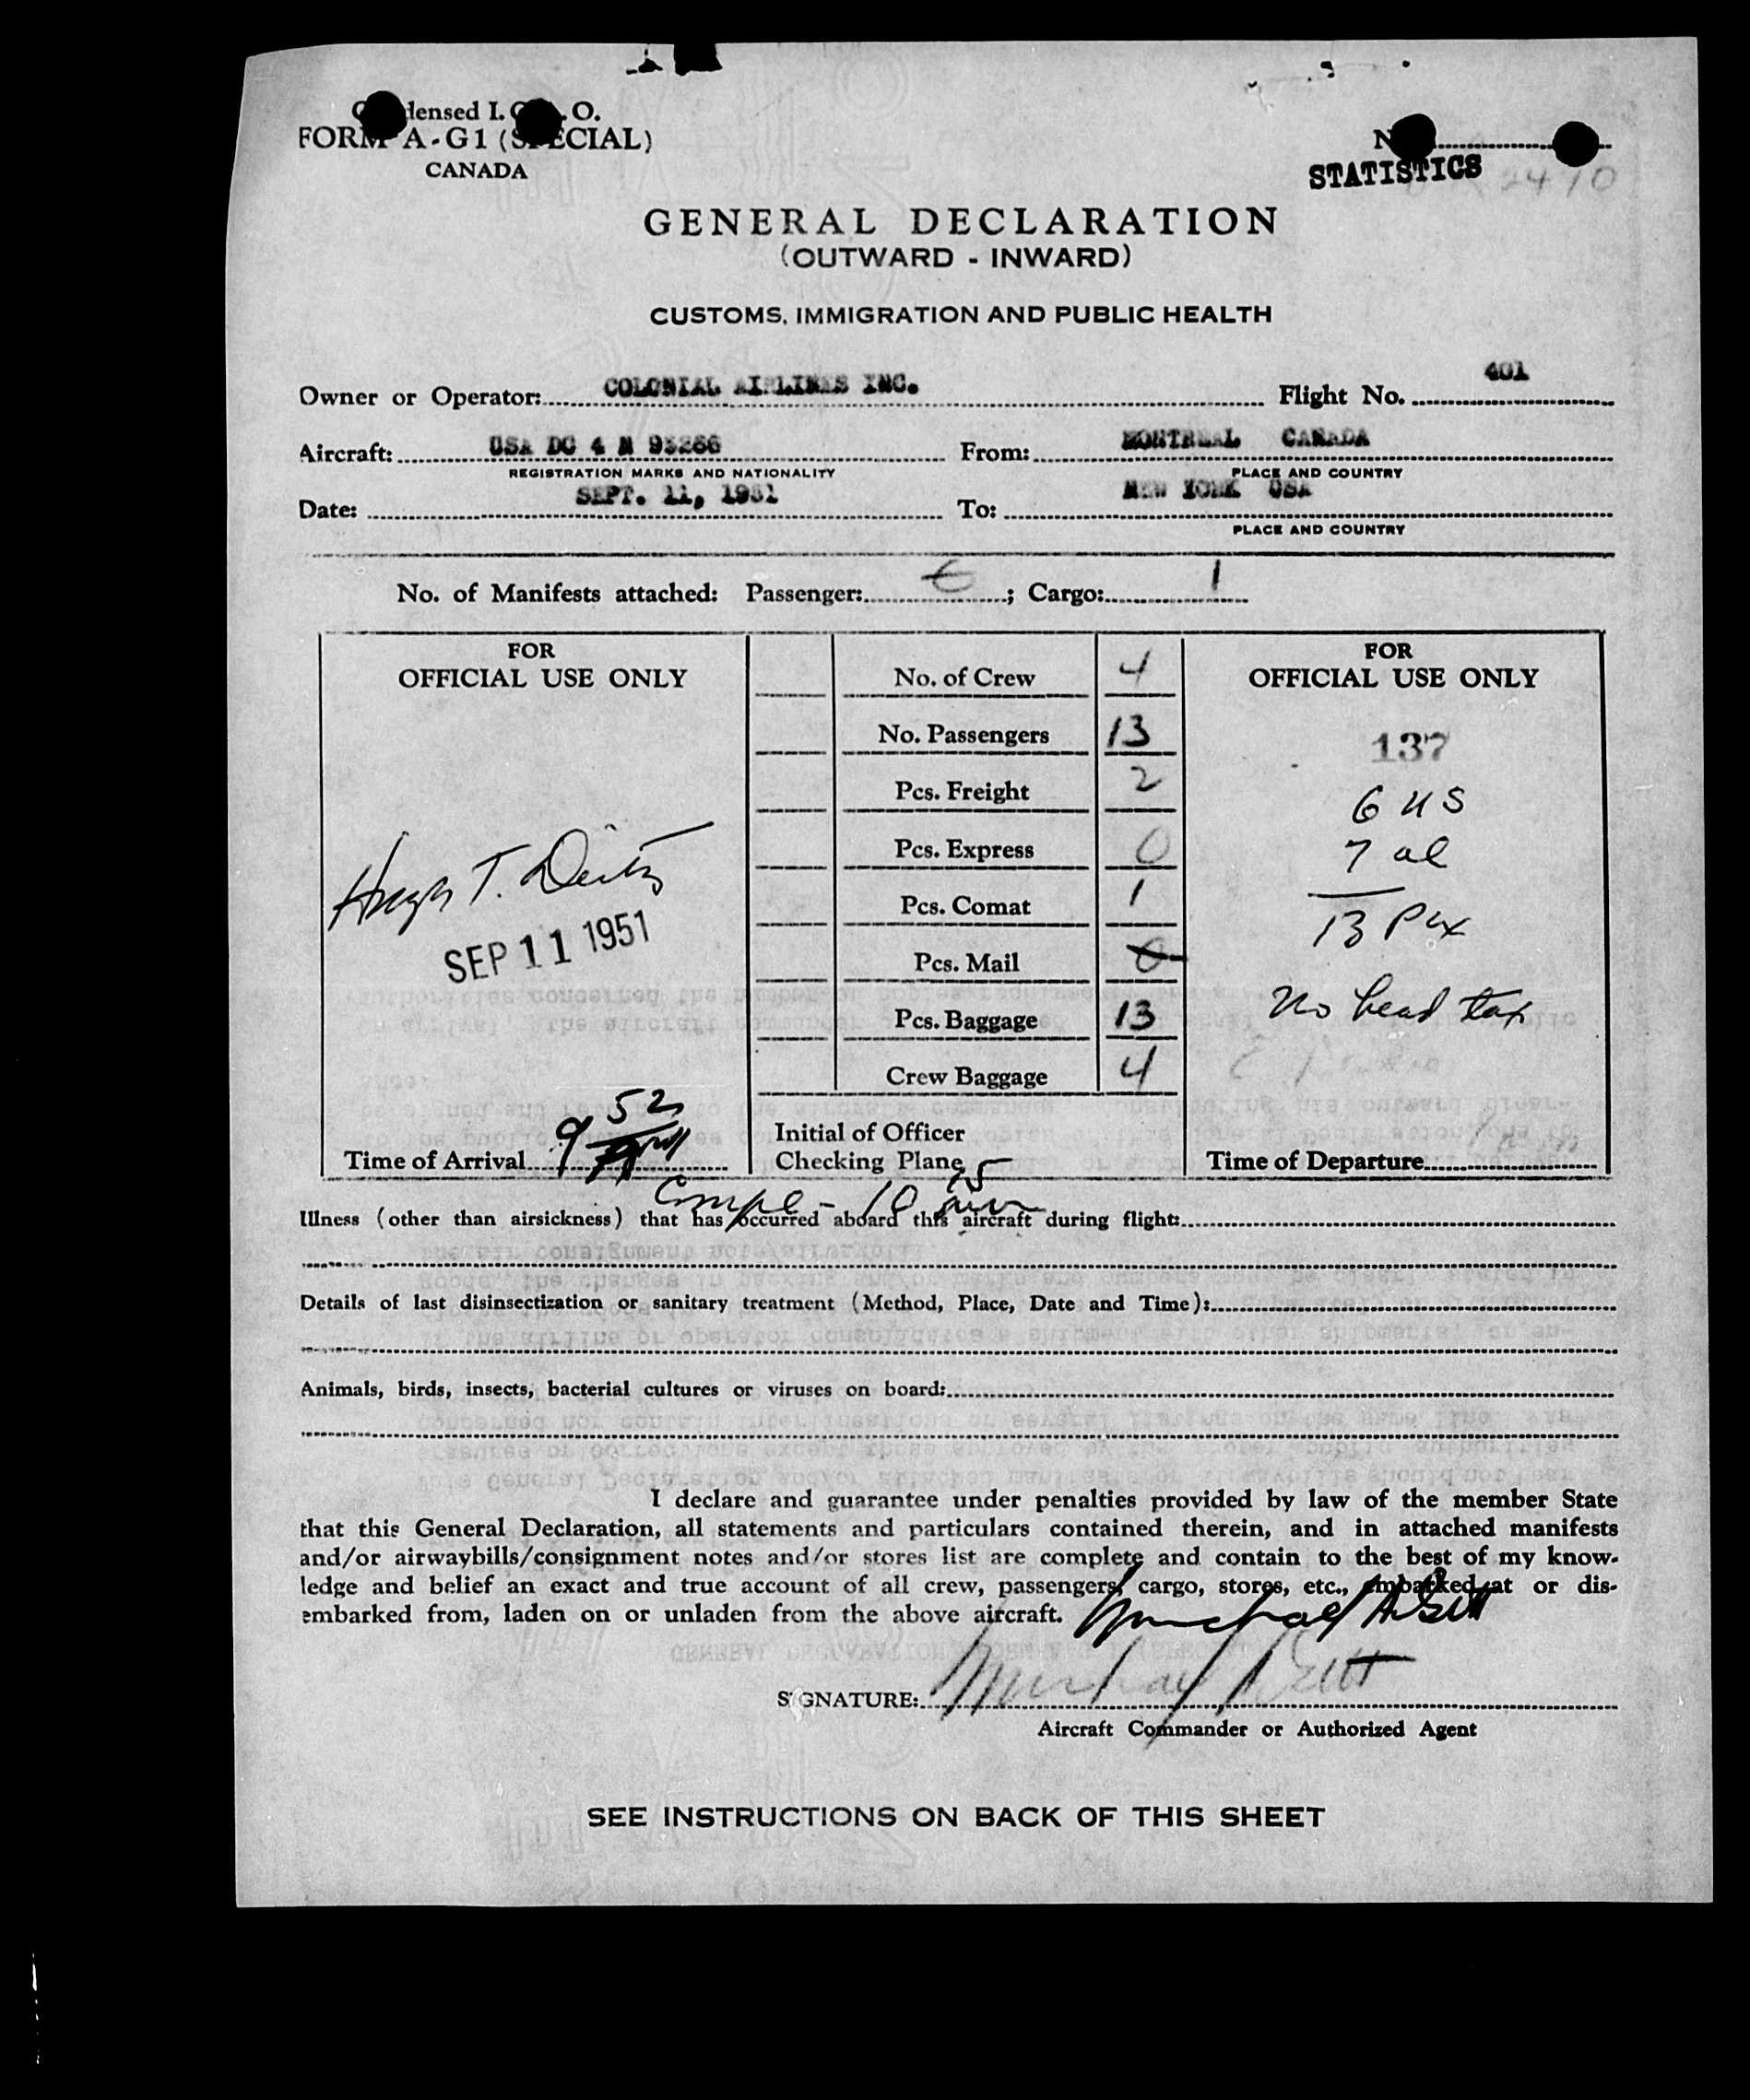 Condensed I. C. A. O.
FORM A-G1 (SPECIAL)
CANADA
No.
STATISTICS
GENERAL DECLARATION
(OUTWARD - INWARD)
CUSTOMS, IMMIGRATION AND PUBLIC HEALTH
Owner or Operator: COLONIAL AIRLINES INC. Flight No. 401
Aircraft: USA DC 4 N 93266 From: MONTREAL CANADA
REGISTRATION MARKS AND NATIONALITY PLACE AND COUNTRY
Date: SEPT. 11, 1951 To: NEW YORK USA
PLACE AND COUNTRY
No. of Manifests attached: Passenger: ; Cargo: 1
FOR
OFFICIAL USE ONLY
Hugh T.
SEP 11 1951
Time of Arrival 9 52
No. of Crew 4
No. Passengers 13
Pcs. Freight 2
Pcs. Express 0
Pcs. Comat 1
Pcs. Mail 0
Pcs. Baggage 13
Crew Baggage 4
Initial of Officer
Checking Plane
FOR
OFFICIAL USE ONLY
137
6 US
7 al
13 Pax
No head tax
Time of Departure
Compl - 10 15
Illness (other than airsickness) that has occurred aboard this aircraft during flight:
Details of last disinsectization or sanitary treatment (Method, Place, Date and Time):
Animals, birds, insects, bacterial cultures or viruses on board:
I declare and guarantee under penalties provided by law of the member State
that this General Declaration, all statements and particulars contained therein, and in attached manifests
and/or airwaybills/consignment notes and/or stores list are complete and contain to the best of my know-
ledge and belief an exact and true account of all crew, passengers, cargo, stores, etc., embarked at or dis-
embarked from, laden on or unladen from the above aircraft.
SIGNATURE:
Aircraft Commander or Authorized Agent
SEE INSTRUCTIONS ON BACK OF THIS SHEET